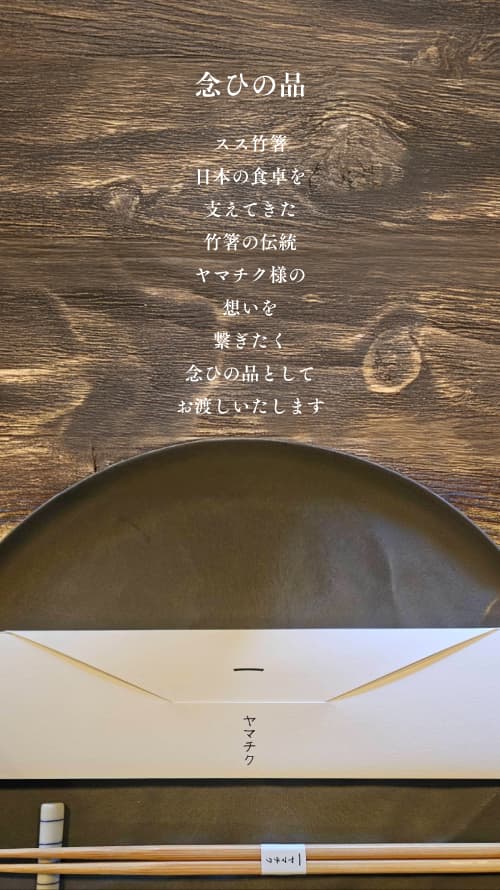 念ひの品
スス竹箸
日本の食卓を
支えてきた
竹箸の伝統
ヤマチク様の
想いを
繋ぎたく
念ひの品として
お渡しいたします
一
ヤマチク
一ヤマチク